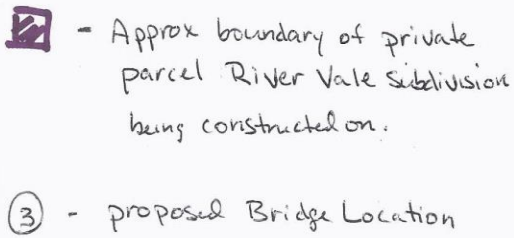 - Approx boundary of private
parcel River Vale Subdivision
being constructed on.
3 - proposed Bridge Location